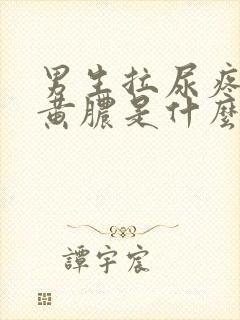 男生拉尿疼
黄膿是什麼
譚宇宸